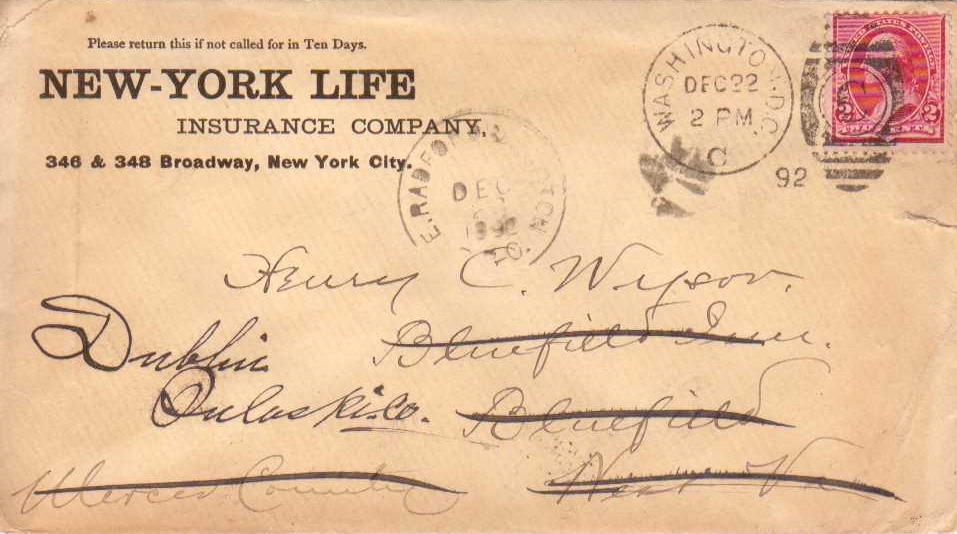 Please return this if not called for in Ten Days.
NEW-YORK LIFE
INSURANCE COMPANY,
346 & 348 Broadway, New York City.
WASHINGTON, D.C.
DEC 22
2 PM
C
92
UNITED STATES POSTAGE
2 2
TWO CENTS
E. RADFORD
DEC
1892
Henry C. Wysor.
Bluefield Inn.
Dublin
Pulaski. Co.
Bluefield
West Va
Mercer County